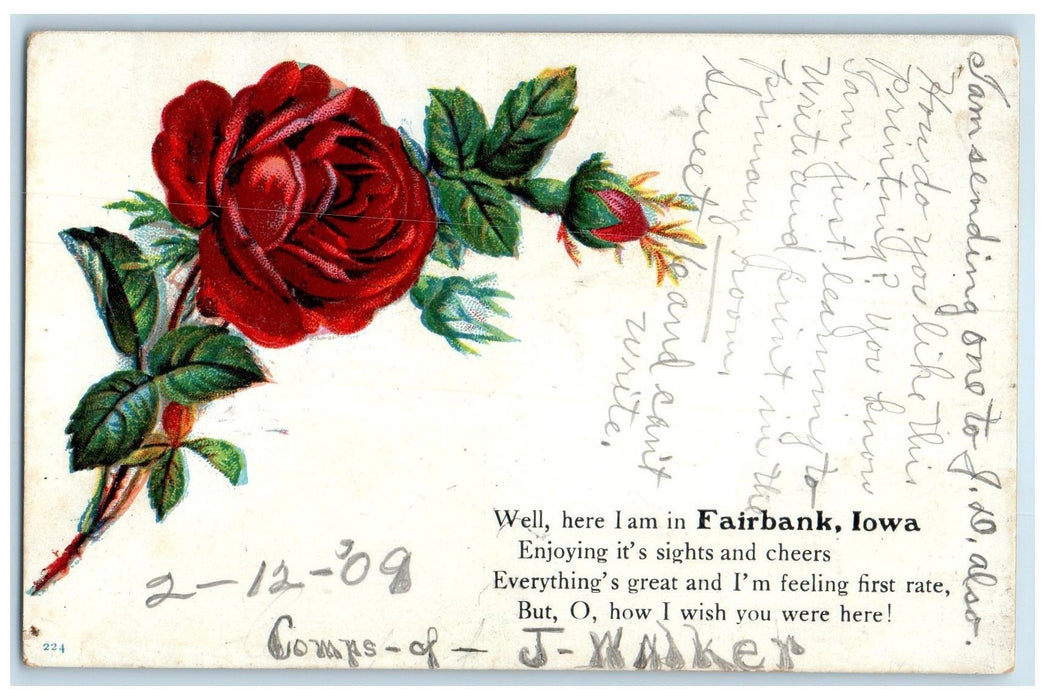 I am sending one to J. D. also.
How do you like this
printing? You know
I am just learning to
write and print in the
primary room.
Sweet 16 and can't
write.
Well, here I am in Fairbank, Iowa
Enjoying it's sights and cheers
Everything's great and I'm feeling first rate,
But, O, how I wish you were here!
2-12-'09
Comps-of- J-Walker
224